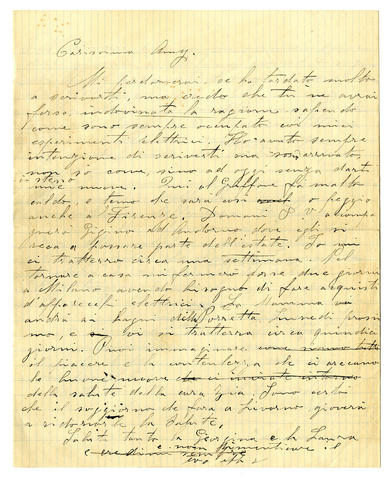 Carissima Amy.
Mi perdonerai, se ho tardato molto
a scriverti, ma credo che tu ne avrai
forse, indovinata la ragione sapendo
come sono sempre occupato coi miei
esperimenti elettrici. Ho avuto sempre
intenzione di scriverti, ma non
so come, sino ad oggi senza darti
mie nuove. Qui al Griffone fa molto
caldo, e temo che sarà così o peggio
anche a Firenze. Domani
Gigino dove egli si
reca a passare parte dell'estate. Io non
ci tratterrò circa una settimana. Nel
tornare a casa mi fermerò forse due giorni
a Milano avendo bisogno di fare acquisti
d'apparecchi elettrici. La Mamma va
andrà ai bagni della Porretta lunedì prossi
mo, e vi si tratterrà circa quindici
giorni. Puoi immaginare
il piacere e la contentezza che ci arrecano
le buone nuove
della salute della cara Zia. Sono certo
che il soggiorno che farà a Livorno gioverà
a ridonarle la salute.
Saluta tanto la Georgina e la Laura
e non dimenticare il